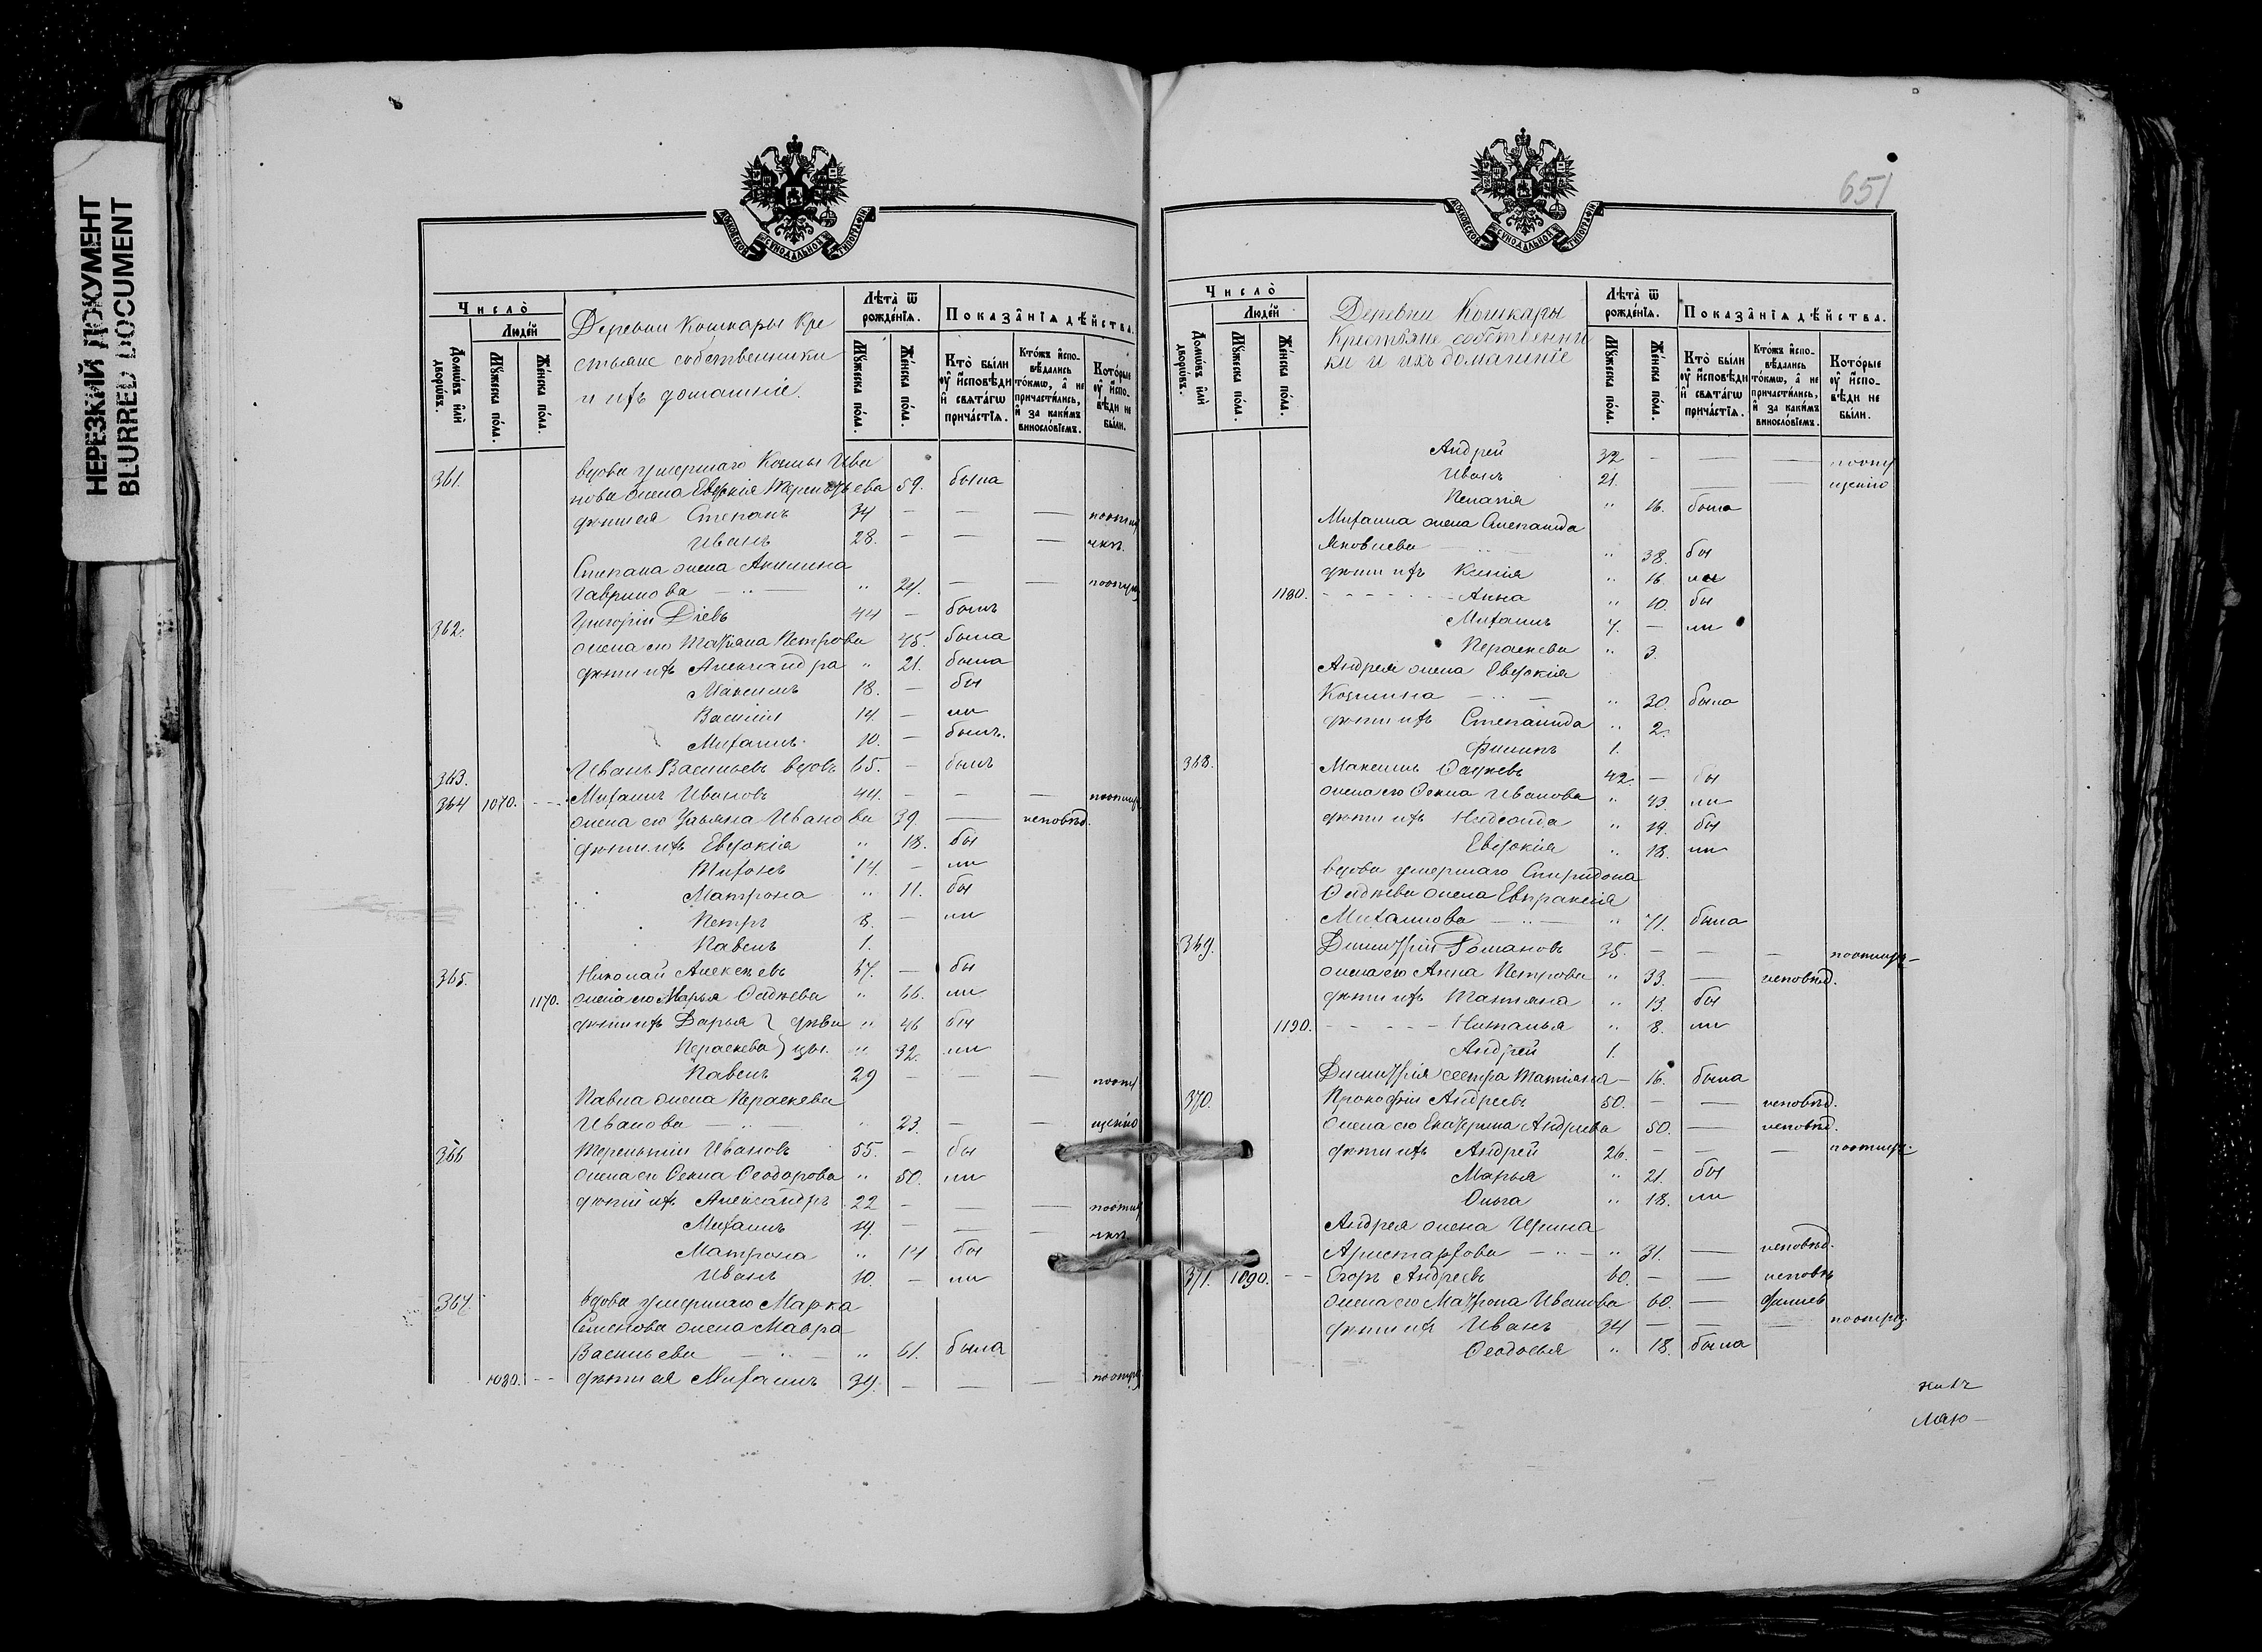 НЕРЕЗКИЙ ДОКУМЕНТ
BLURRED DOCUMENT
МОСКОВСКОЙ СѴНОДАЛЬНОЙ ТИПОГРАФІИ
Число̀
Люде́й
Домѡ́въ и҆лѝ дворѡ́въ.
Мꙋ́жеска по́ла.
Же́нска по́ла.
Деревни Кошкары Кре
стьяне собственники
и ихъ домашніе.
Лѣта̀ ѿ рожде́нїѧ.
Мꙋ́жеска по́ла.
Же́нска по́ла.
Показа̑нїѧ дѣ́йства.
Кто̀ бы́ли оу҆ и҆сповѣди и҆ свѧта́гѡ прича́стїѧ.
Кто́жъ и҆спо-вѣ́дались то́кмѡ, а҆ не причасти́лись, и҆ за каки́мъ винослові́емъ.
Кото́рые оу҆ и҆спо-вѣ́ди не бы́ли.
361. вдова умершаго Космы Ива
нова жена Евдокія Терентьева 59. была
дѣти ея Степанъ 34 — — —
Иванъ 28. — — —
Степана жена Акилина
Гаврилова — „ — „ 24. — —
362. Григорій Діевъ 44 — былъ
жена его Татіана Петрова 45. была
дѣти ихъ Александра „ 21. была
Максимъ 18. — бы
Василій 14. — ли
Михаилъ 10. — былъ.
363. Иванъ Васильевъ вдовъ 65. — былъ
364 1070. Михаилъ Ивановъ 44. — — —
жена его Ульяна Иванова 39. — исповѣд.
дѣти ихъ Евдокія „ 18. бы
Титонъ 14. — ли
Матрона „ 11. бы
Петръ 8. — ли
Павелъ 1.
365. Николай Алексѣевъ 67. — бы
1170. жена его Марья Фадѣева „ 66. ли
дѣти ихъ Дарья } дѣви „ 46 бы
Параскева } цы. „ 32. ли
Павелъ 29 — — —
Павла жена Параскева
Иванова — „ — „ 23. — — щенію
366 Терентій Ивановъ 55. — бы
жена его Ѳекла Ѳеодорова „ 50. ли
дѣти ихъ Александръ 22 — — —
Михаилъ 19. — — —
Матрона „ 14 бы
Иванъ 10. — ли
367. вдова умершаго Марка
Семенова жена Мавра
Васильева — „ — „ 61. была
1080. дѣти ея Михаилъ 39. — — —
651
МОСКОВСКОЙ СѴНОДАЛЬНОЙ ТИПОГРАФІИ
Число̀
Люде́й
Домѡ́въ и҆лѝ дворѡ́въ.
Мꙋ́жеска по́ла.
Же́нска по́ла.
Деревни Кошкары
Крестьяне собственни
ки и ихъ домашніе
Лѣта̀ ѿ рожде́нїѧ.
Мꙋ́жеска по́ла.
Же́нска по́ла.
Показа̑нїѧ дѣ́йства.
Кто̀ бы́ли оу҆ и҆сповѣди и҆ свѧта́гѡ прича́стїѧ.
Кто́жъ и҆спо-вѣ́дались то́кмѡ, а҆ не причасти́лись, и҆ за каки́мъ винослові́емъ.
Кото́рые оу҆ и҆спо-вѣ́ди не бы́ли.
Андрей 32 — — — поопу
Иванъ 21. — — щенію
Пелагія „ 16. была
Михаила жена Степанида
Яковлева — „ — „ 38. бы
дѣти ихъ Ксенія „ 16. ли
1180. Анна „ 10. бы
Михаилъ 7. — ли
Параскева „ 3.
Андрея жена Евдокія
Козмина — „ — „ 30. была
дѣти ихъ Степанида „ 2.
Филипъ 1.
368. Максимъ Фадѣевъ 42. — бы
жена его Ѳекла Иванова „ 43. ли
дѣти ихъ „ 19. бы
Евдокія „ 18. ли
вдова умершаго Спиридона
Фадѣева жена Евпраксія
Михаилова — „ — „ 71. была
369. Димитрій Романовъ 35. — — —
жена его Анна Петрова „ 33. — исповѣд.
дѣти ихъ Татіана „ 13. бы
1190. Наталья „ 8. ли
Андрей 1.
Димитрія сестра Татіяна — 16. была
370. Прокофій Андреевъ 50. — — исповѣд.
жена его Екатерина Андреева 50. — исповѣд.
дѣти ихъ Андрей 26. — — —
Марья „ 21. бы
Ольга „ 18. ли
Андрея жена Ирина
Аристархова — „ — „ 31. — исповѣд.
371. 1090. Егоръ Андреевъ 60. — — исповѣ
жена его Матрона Иванова 60. —
дѣти ихъ Иванъ 34 — — —
Ѳеодосья „ 18. была